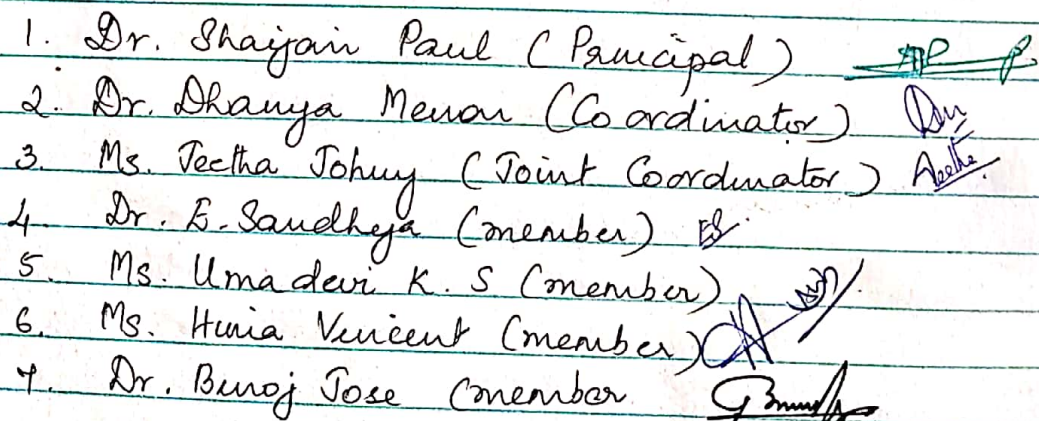 1. Dr. Shaijan Paul (Principal)
2. Dr. Dhanya Menon (Coordinator)
3. Ms. Jeetha Johny (Joint Coordinator)
4. Dr. E. Sandheya (member)
5. Ms. Uma devi K. S (member)
6. Ms. Vincent (member)
7. Dr. Benoj Jose (member